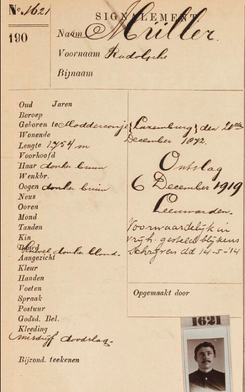 No. 1621
SIGNALEMENT.
190
Naam Müller.
Voornaam Rudolph
Bijnaam
Oud Jaren
Beroep
Geboren te (Luxemburg) den
Wonende December 1872.
Lengte 1,754 m
Voorhoofd
Haar donker bruin
Wenkbr.
Oogen donker bruin
Neus
Ooren
Mond
Tanden
Kin
donker blond.
Aangezicht
Kleur
Handen
Voeten
Spraak
Postuur
Godsd. Bel.
Kleeding
misdrijf doodslag
Bijzond. teekenen
Ontslag
6 December 1919
Leeuwarden.
Voorwaardelijk in
vrijh. gesteld blijkens
schrijven dd 14-5-'14
Opgemaakt door
1621